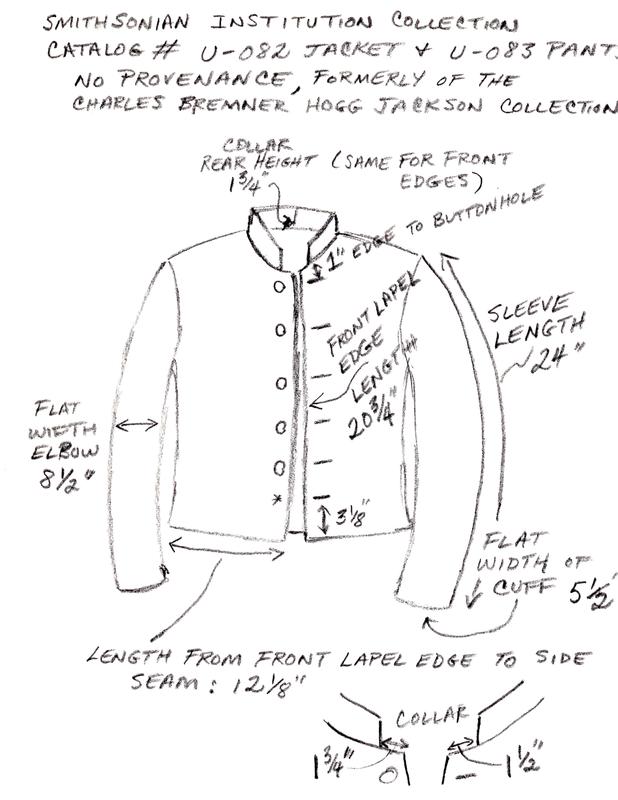 SMITHSONIAN INSTITUTION COLLECTION
CATALOG # U-082 JACKET & U-083 PANT
NO PROVENANCE, FORMERLY OF THE
CHARLES BREMNER HOGG JACKSON COLLECTION
COLLAR
REAR HEIGHT (SAME FOR FRONT
EDGES)
1 3/4"
1" EDGE TO BUTTONHOLE
FRONT LAPEL
EDGE
LENGTH
20 3/4"
SLEEVE
LENGTH
24"
FLAT
WIDTH
ELBOW
8 1/2"
3 1/8"
FLAT
WIDTH OF
CUFF 5 1/2
LENGTH FROM FRONT LAPEL EDGE TO SIDE
SEAM: 12 1/8"
COLLAR
1 3/4"
1 1/2"